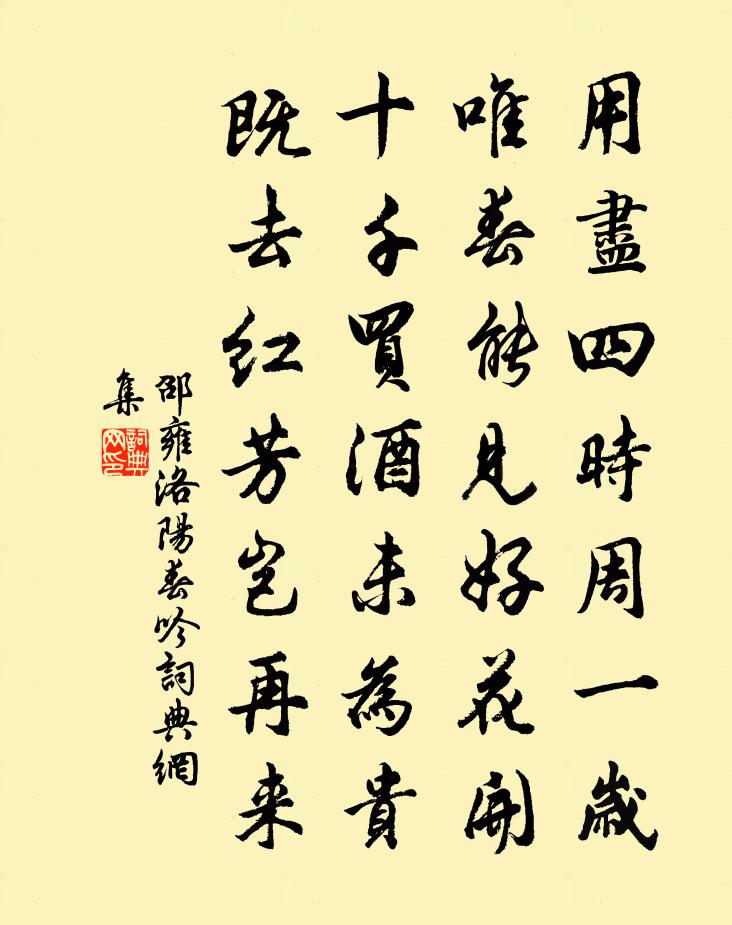 用盡四時周一歲
唯春能見好花開
十千買酒未為貴
既去红芳岂再来
邵雍洛陽春吟詞典網
集
詞典
网印